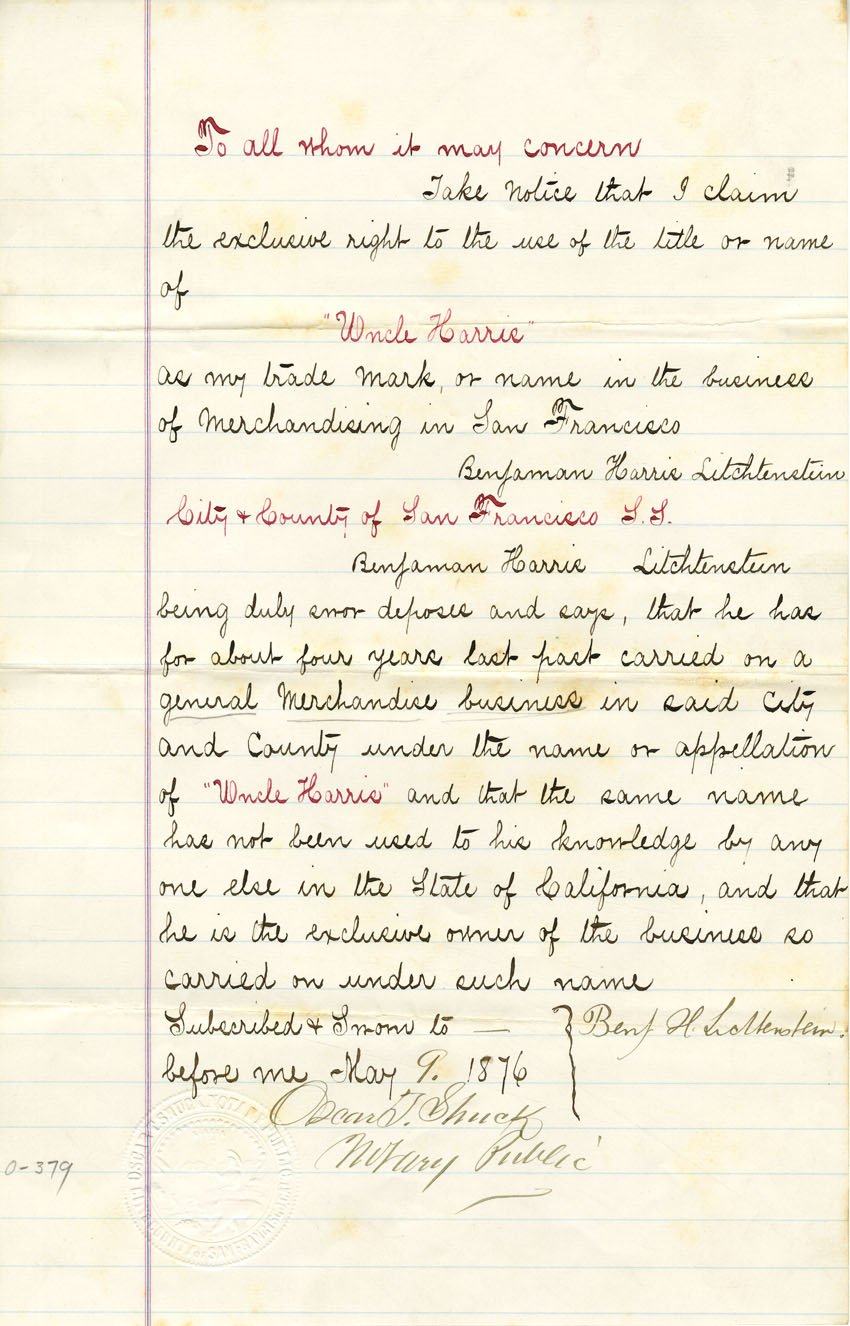 To all whom it may concern
Take Notice that I claim
the exclusive right to the use of the title or name
of
"Uncle Harris"
as my trade Mark, or name in the business
of Merchandising in San Francisco
Benjaman Harris Litchtenstein
City & County of San Francisco S.S.
Benjaman Harris Litchtenstein
being duly swor deposes and says, that he has
for about four years last past carried on a
general Merchandise business in said City
and County under the name or appellation
of "Uncle Harris" and that the same name
has not been used to his knowledge by any
one else in the State of California, and that
he is the exclusive owner of the business so
carried on under such name
Subscribed & Sworn to — } Benj H. Lichtenstein.
before me May 9. 1876
Oscar T. Shuck
Notary Public
0-379